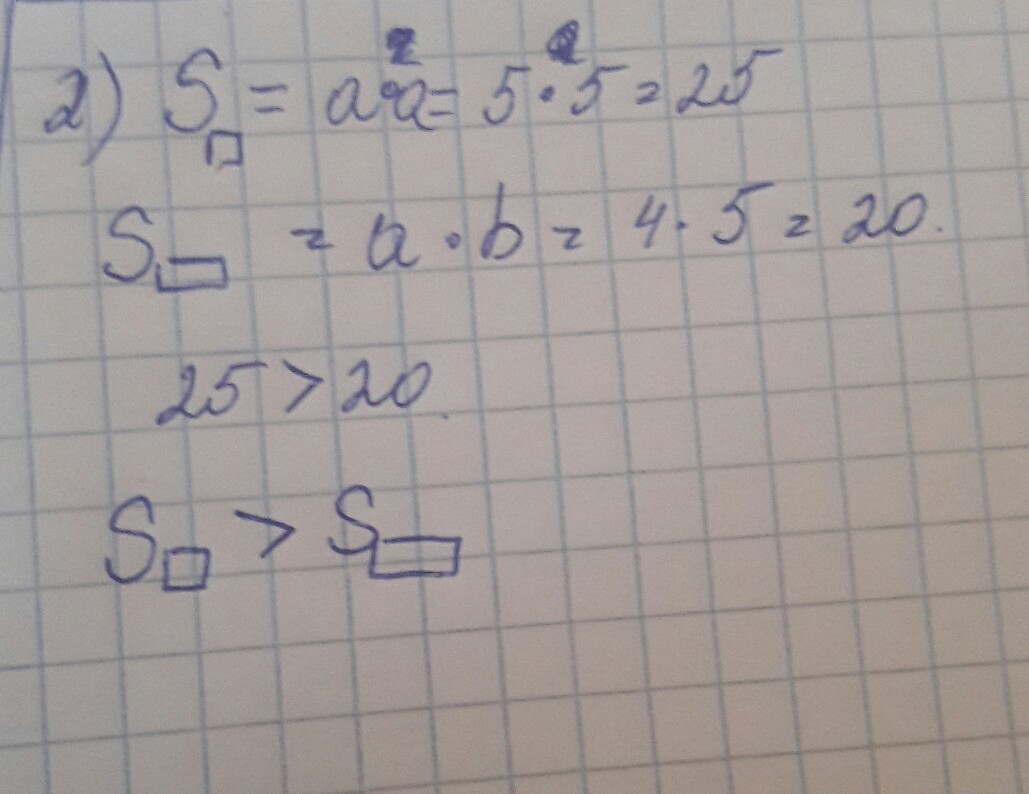 2) S□ = a·a = 5·5 = 25
S▭ = a·b = 4·5 = 20.
25 > 20.
S□ > S▭